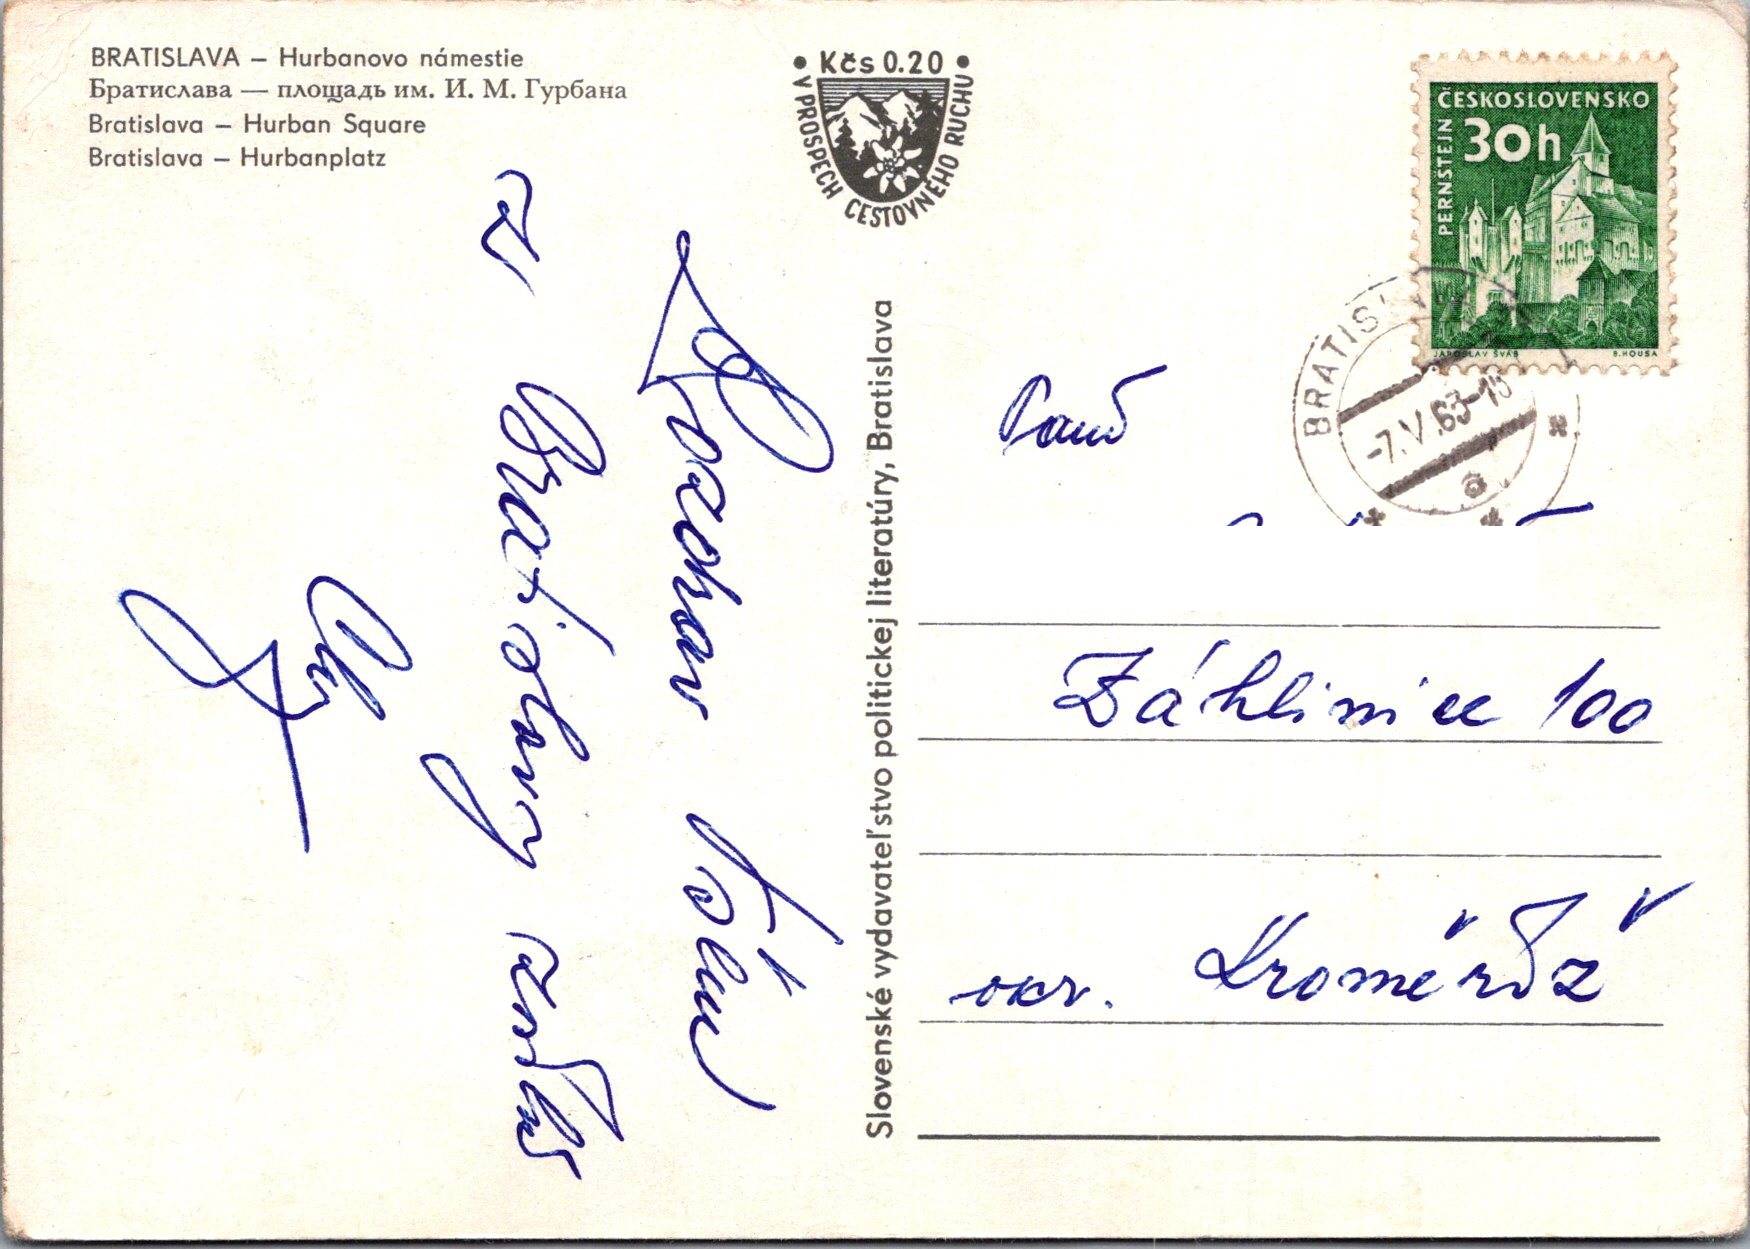 BRATISLAVA – Hurbanovo námestie
Братислава — площадь им. И. М. Гурбана
Bratislava – Hurban Square
Bratislava – Hurbanplatz
• Kčs 0.20 •
V PROSPECH CESTOVNÉHO RUCHU
ČESKOSLOVENSKO
PERNŠTEJN
30h
JAROSLAV ŠVÁB
B. HOUSA
BRATISLAVA
-7.V.63-18
Slovenské vydavateľstvo politickej literatúry, Bratislava
Pozdrav
z Bratislavy
Paní
Záhlinice 100
okr. Kroměříž